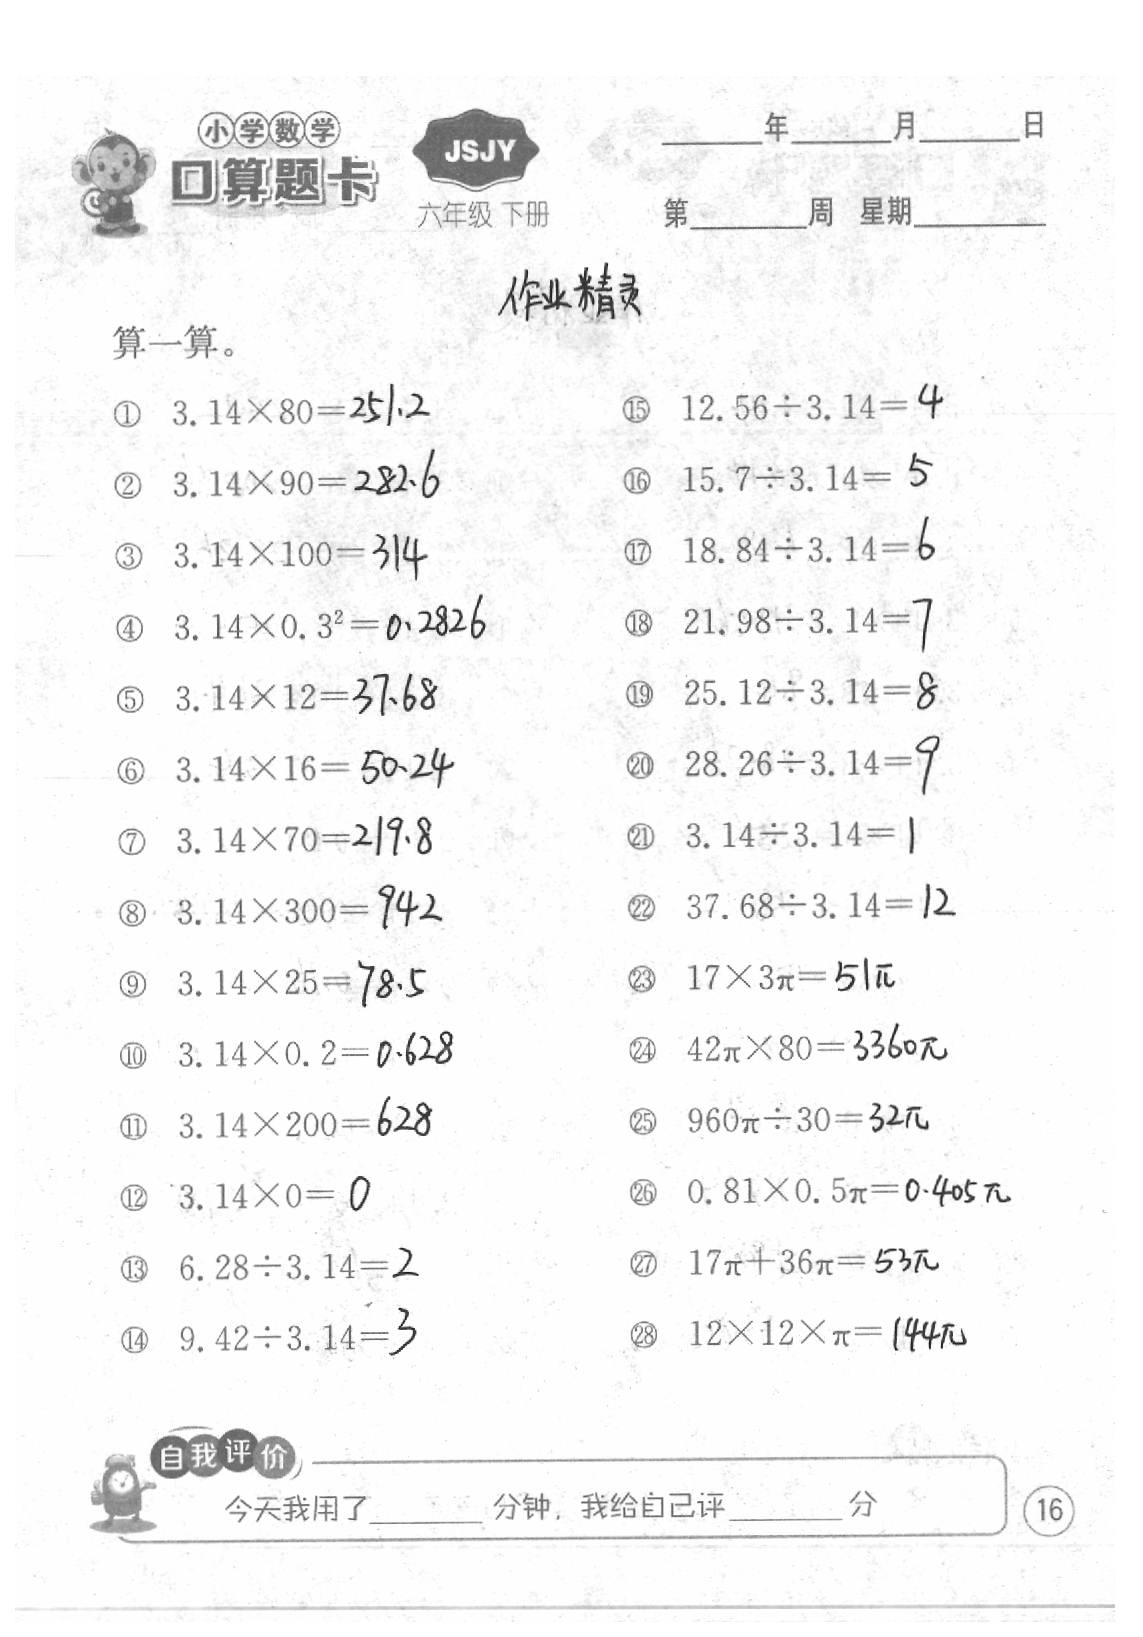 小学数学
口算题卡
JSJY
六年级 下册
____年____月____日
第____周 星期____
作业精灵
算一算。
① 3.14×80=251.2
② 3.14×90=282.6
③ 3.14×100=314
④ 3.14×0.3²=0.2826
⑤ 3.14×12=37.68
⑥ 3.14×16=50.24
⑦ 3.14×70=219.8
⑧ 3.14×300=942
⑨ 3.14×25=78.5
⑩ 3.14×0.2=0.628
⑪ 3.14×200=628
⑫ 3.14×0=0
⑬ 6.28÷3.14=2
⑭ 9.42÷3.14=3
⑮ 12.56÷3.14=4
⑯ 15.7÷3.14=5
⑰ 18.84÷3.14=6
⑱ 21.98÷3.14=7
⑲ 25.12÷3.14=8
⑳ 28.26÷3.14=9
㉑ 3.14÷3.14=1
㉒ 37.68÷3.14=12
㉓ 17×3π=51π
㉔ 42π×80=3360π
㉕ 960π÷30=32π
㉖ 0.81×0.5π=0.405π
㉗ 17π+36π=53π
㉘ 12×12×π=144π
自我评价
今天我用了____分钟，我给自己评____分
16